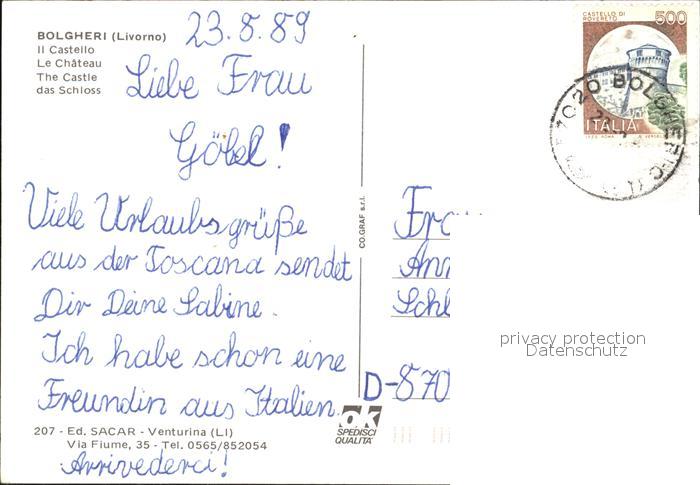 BOLGHERI (Livorno)
Il Castello
Le Château
The Castle
das Schloss
23.8.89
Liebe Frau
Göbel!
Viele Urlaubsgrüße
aus der Toscana sendet
Dir Deine Sabine.
Ich habe schon eine
Freundin aus Italien.
Arrivederci!
207 - Ed. SACAR - Venturina (LI)
Via Fiume, 35 - Tel. 0565/852054
CO.GRAF s.r.l.
ok
SPEDISCI
QUALITA'
CASTELLO DI
ROVERETO
500
ITALIA
BOLGHERI
D-870
privacy protection
Datenschutz